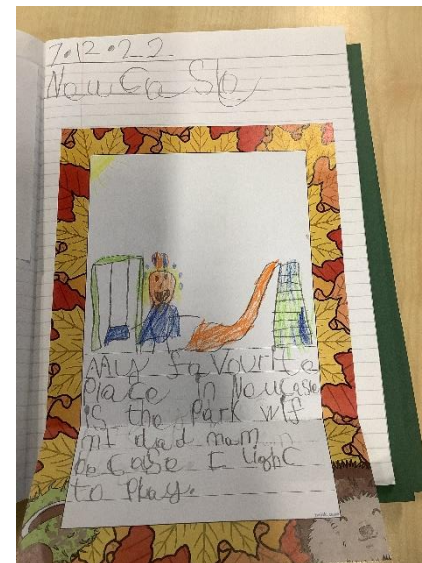 7.12.22
NewCaSle
My favourite
Place in Newcasle
is the Park wif
mt dad mam
be Case I lighC
to Play.